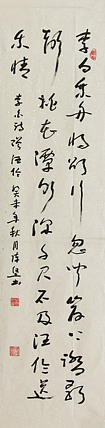 李白乘舟将欲行忽闻岸上踏歌
声桃花潭水深千尺不及汪伦送
我情 李白诗赠汪伦 癸未年秋月 书